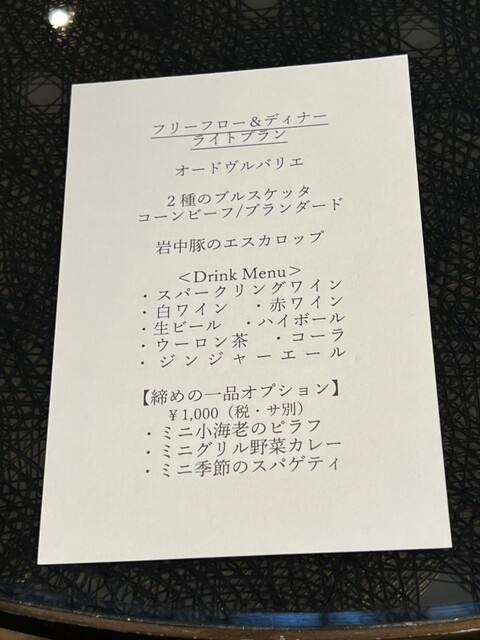 フリーフロー＆ディナー
ライトプラン
オードヴルバリエ
２種のブルスケッタ
コーンビーフ/ブランダード
岩中豚のエスカロップ
＜Drink Menu＞
・スパークリングワイン
・白ワイン　・赤ワイン
・生ビール　・ハイボール
・ウーロン茶　・コーラ
・ジンジャーエール
【締めの一品オプション】
￥1,000（税・サ別）
・ミニ小海老のピラフ
・ミニグリル野菜カレー
・ミニ季節のスパゲティ